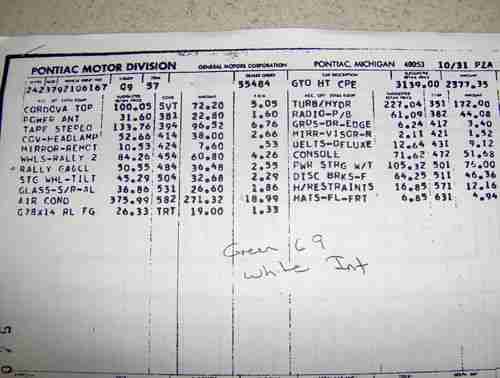 PONTIAC MOTOR DIVISION GENERAL MOTORS CORPORATION PONTIAC, MICHIGAN 48053 10/31 PZA
242379Z106167 Q9 57 55484 GTO HT CPE 3139.00 2377.35
CORDOVA TOP 100.05 SVT 72.20 5.05 TURB/HYDR 227.04 351 172.00
POWER ANT 31.60 381 22.80 1.60 RADIO-P/B 61.09 382 44.08
TAPE STEREO 133.76 394 96.52 6.76 GRDS-DR-EDGE 6.24 412 3.40
COV-HEADLAMP 52.66 414 38.00 2.66 MIRR-VISOR-M 2.11 421 1.52
MIRROR-REMCT 10.53 424 7.60 .53 BELTS-DELUXE 12.64 431 9.12
WHLS-RALLY 2 84.26 454 60.80 4.26 CONSOLE 71.62 472 51.68
RALLY GAGCL 50.55 484 36.48 2.55 PWR STRG W/T 105.32 501 76.00
STG WHL-TILT 45.29 504 32.68 2.29 DISC BRKS-F 64.25 511 46.36
GLASS-S/R-AL 36.86 531 26.60 1.86 H/RESTRAINTS 16.85 571 12.16
AIR COND 375.99 582 271.32 18.99 MATS-FL-FRT 6.85 631 4.94
G78X14 RL FG 26.33 TRT 19.00 1.33
Green 69
White Int